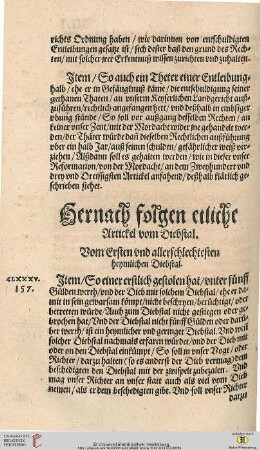 richts Ordnung haben / wie darinnen von entschuldigten
Entleibungen gesatzt ist / sich dester baß den grund des Rech-
ten / mit solcher jrer Erkentnuß wissen zurichten vnd zuhalten.
Item / So auch ein Theter einer Entleibung
halb / ehe er in Gefängknuß käme / die entschuldigung seiner
gethanen Thaten / an vnserm Keyserlichen Landgericht auß-
zuführen / rechtlich angefangen hett / deßhalb in embsiger
vbung stünde / So soll vor außgang desselben Rechten / an
keiner vnser Zent / mit der Mordacht wider jne gehandelt wer-
den / der Thäter würde dañ dieselben Rechtlichen außführung
vber ein halb Jar / auß seinen schulden / gefährlicher weiß ver-
ziehen / Alßdann soll es gehalten werden / wie in dieser vnser
Reformation / von der Mordacht / an dem Zweyhundert vnd
drey vnd Dreissigsten Artickel anfahend / deßhalb klärlich ge-
schrieben stehet.
Hernach folgen etliche
Artickel vom Diebstal.
Vom Ersten vnd allerschlechtesten
heymlichen Diebstal.
CLXXXV.
157.
Item / So einer erstlich gestolen hat / vnter fünff
Gülden werth / vnd der Dieb mit solchem Diebstal / ehe er da-
mit in sein gewarsam kömpt / nicht beschryen / berüchtigt / oder
betretten würde / Auch zum Diebstal nicht gestiegen oder ge-
brochen hat / Vnd der Diebstal nicht fünff Gülden oder darü-
ber werth / ist ein heymlicher vnd geringer Diebstal. Vnd weñ
solcher Diebstal nachmals erfaren würde / vnd der Dieb mit
oder on den Diebstal einkömpt / So soll jn vnser Vogt / oder
Richter / darzu halten / so es anderst der Dieb vermag / dem
beschedigten den Diebstal mit der zwospelt zubezalen. Vnd
mag vnser Richter an vnser statt auch als viel vom Dieb
nemen / als er dem beschedigten gibt. Vnd soll vnser Richter
darzu
UNIVERSITÄTS-
BIBLIOTHEK
HEIDELBERG
© Universitätsbibliothek Heidelberg